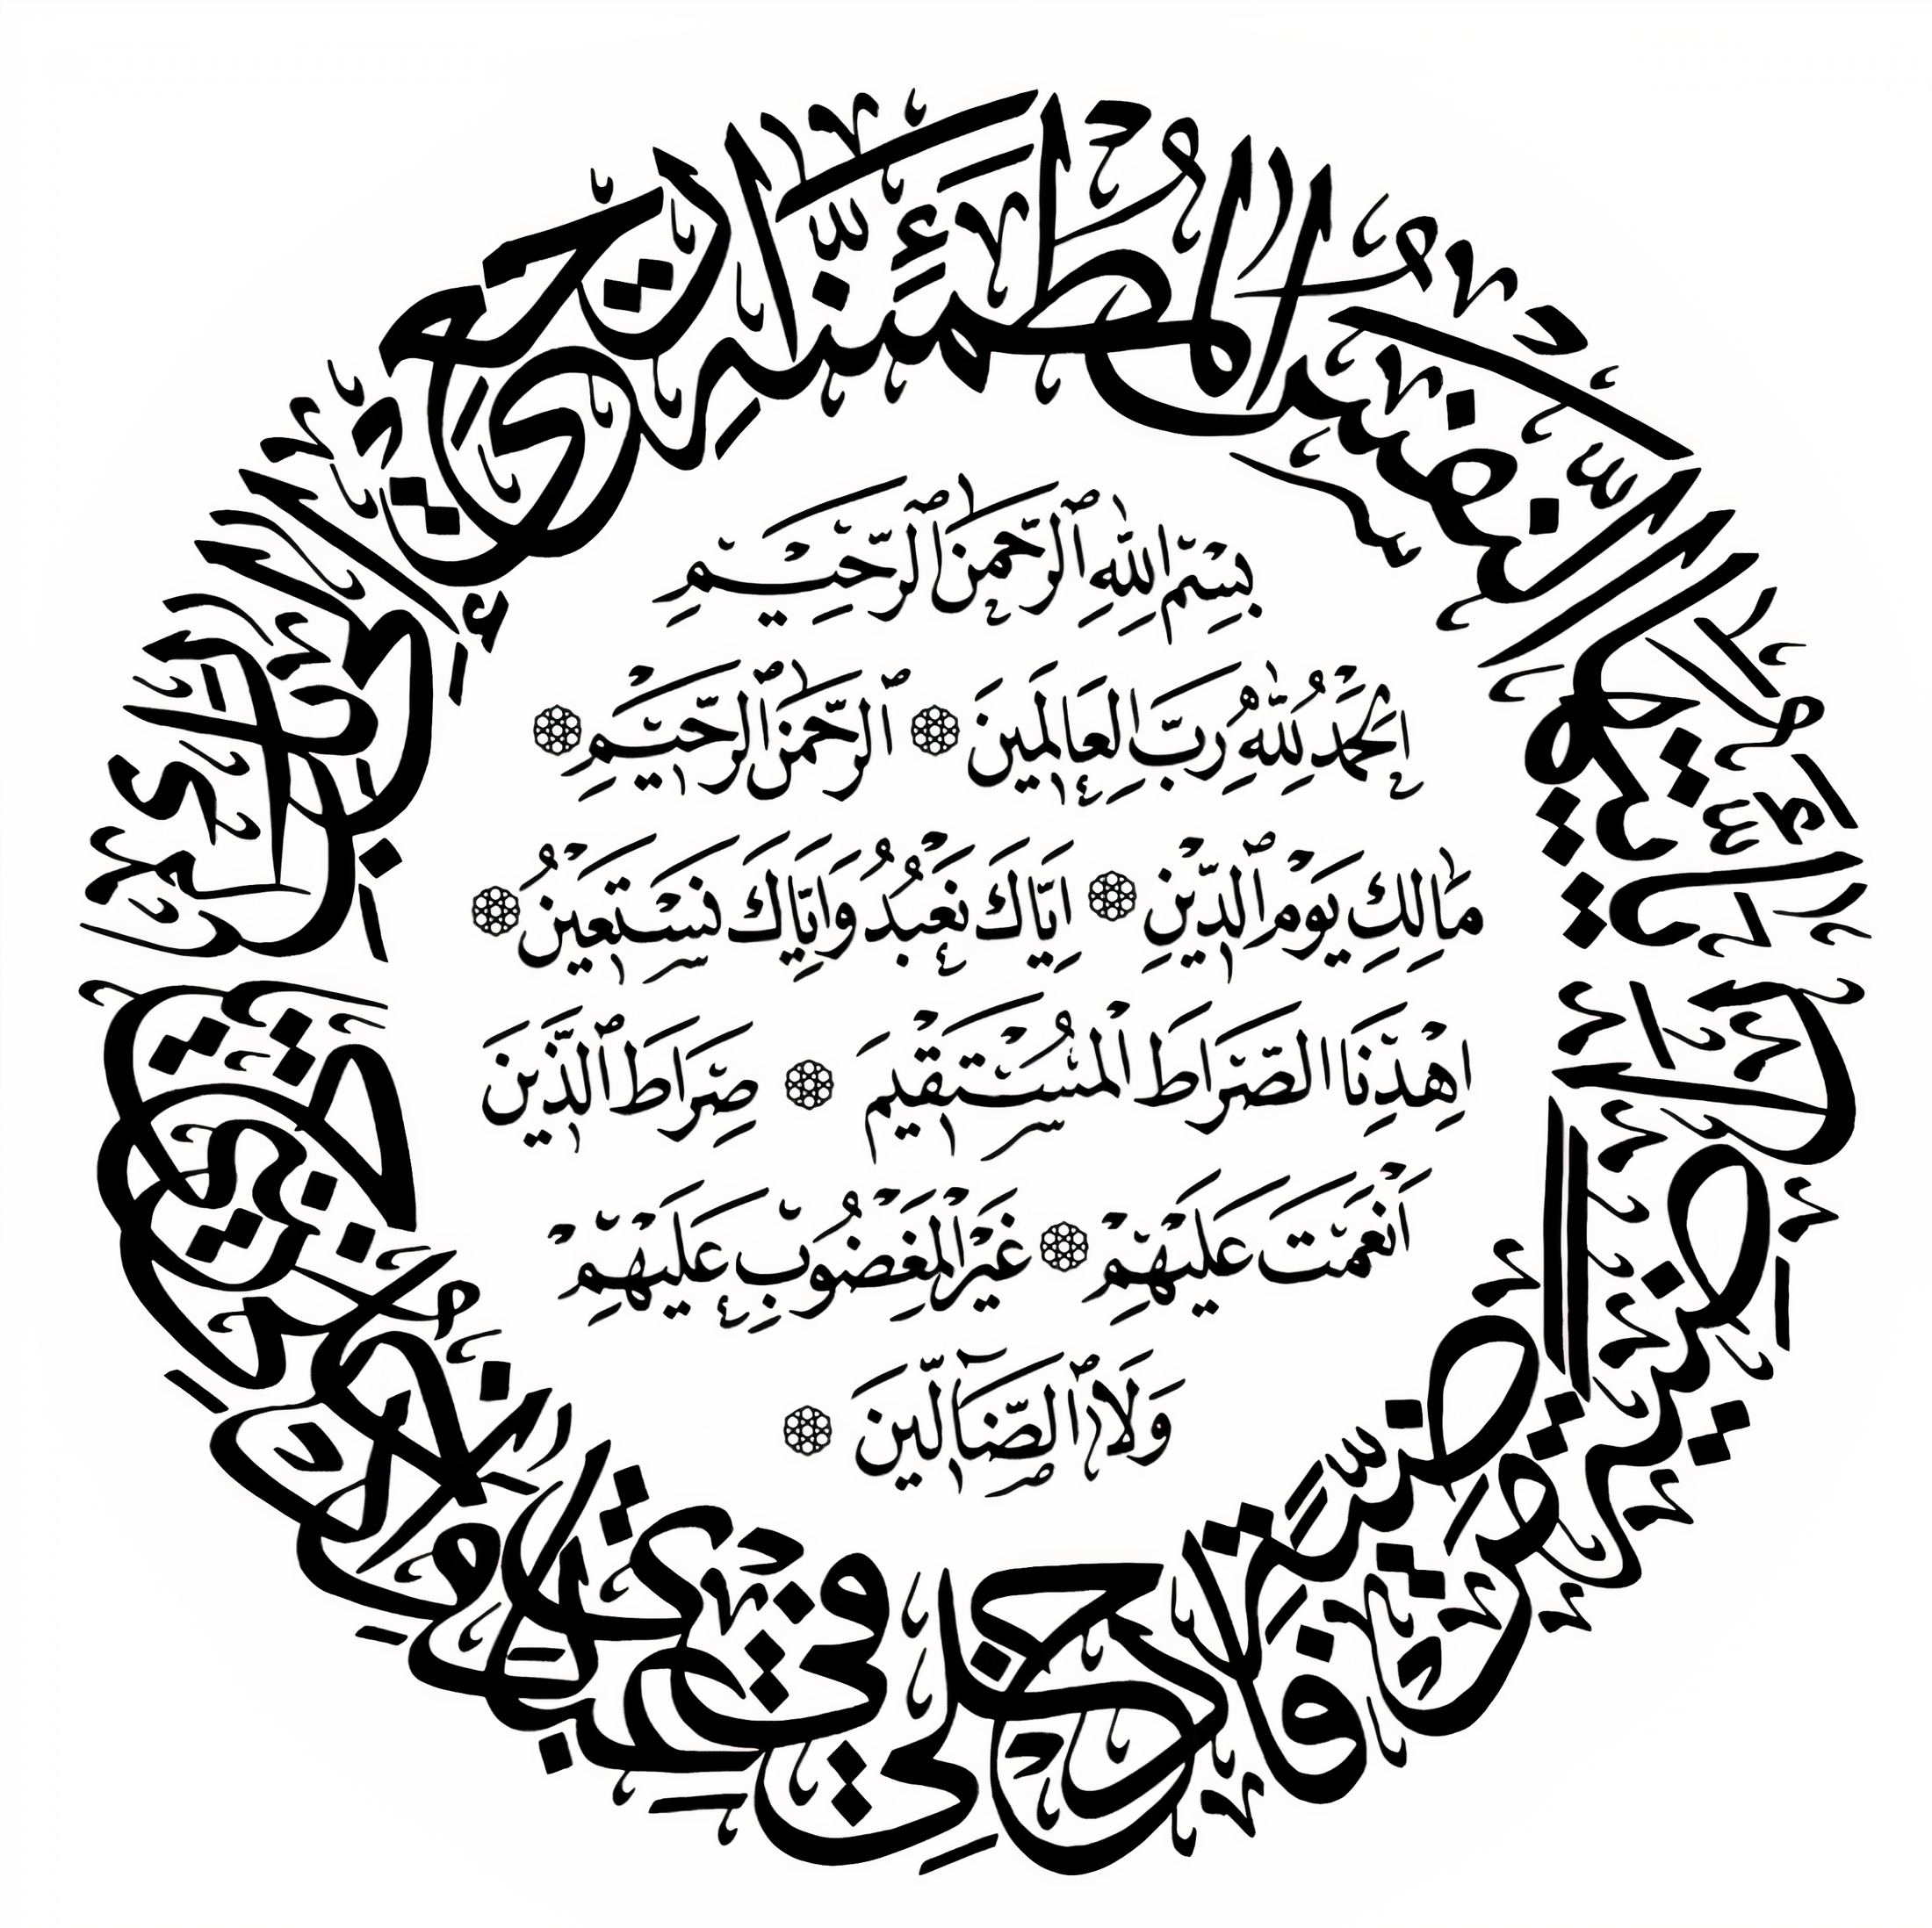 يَا أَيَّتُهَا النَّفْسُ الْمُطْمَئِنَّةُ ارْجِعِي إِلَى رَبِّكِ رَاضِيَةً مَرْضِيَّةً فَادْخُلِي فِي عِبَادِي وَادْخُلِي جَنَّتِي
بِسْمِ اللَّهِ الرَّحْمَنِ الرَّحِيمِ
اَلْحَمْدُ لِلَّهِ رَبِّ الْعَالَمِينَ ۞ اَلرَّحْمَنِ الرَّحِيمِ ۞
مَالِكِ يَوْمِ الدِّينِ ۞ اِيَّاكَ نَعْبُدُ وَاِيَّاكَ نَسْتَعِينُ ۞
اِهْدِنَا الصِّرَاطَ الْمُسْتَقِيمَ ۞ صِرَاطَ الَّذِينَ
اَنْعَمْتَ عَلَيْهِمْ ۞ غَيْرِ الْمَغْضُوبِ عَلَيْهِمْ
وَلَا الضَّالِّينَ ۞